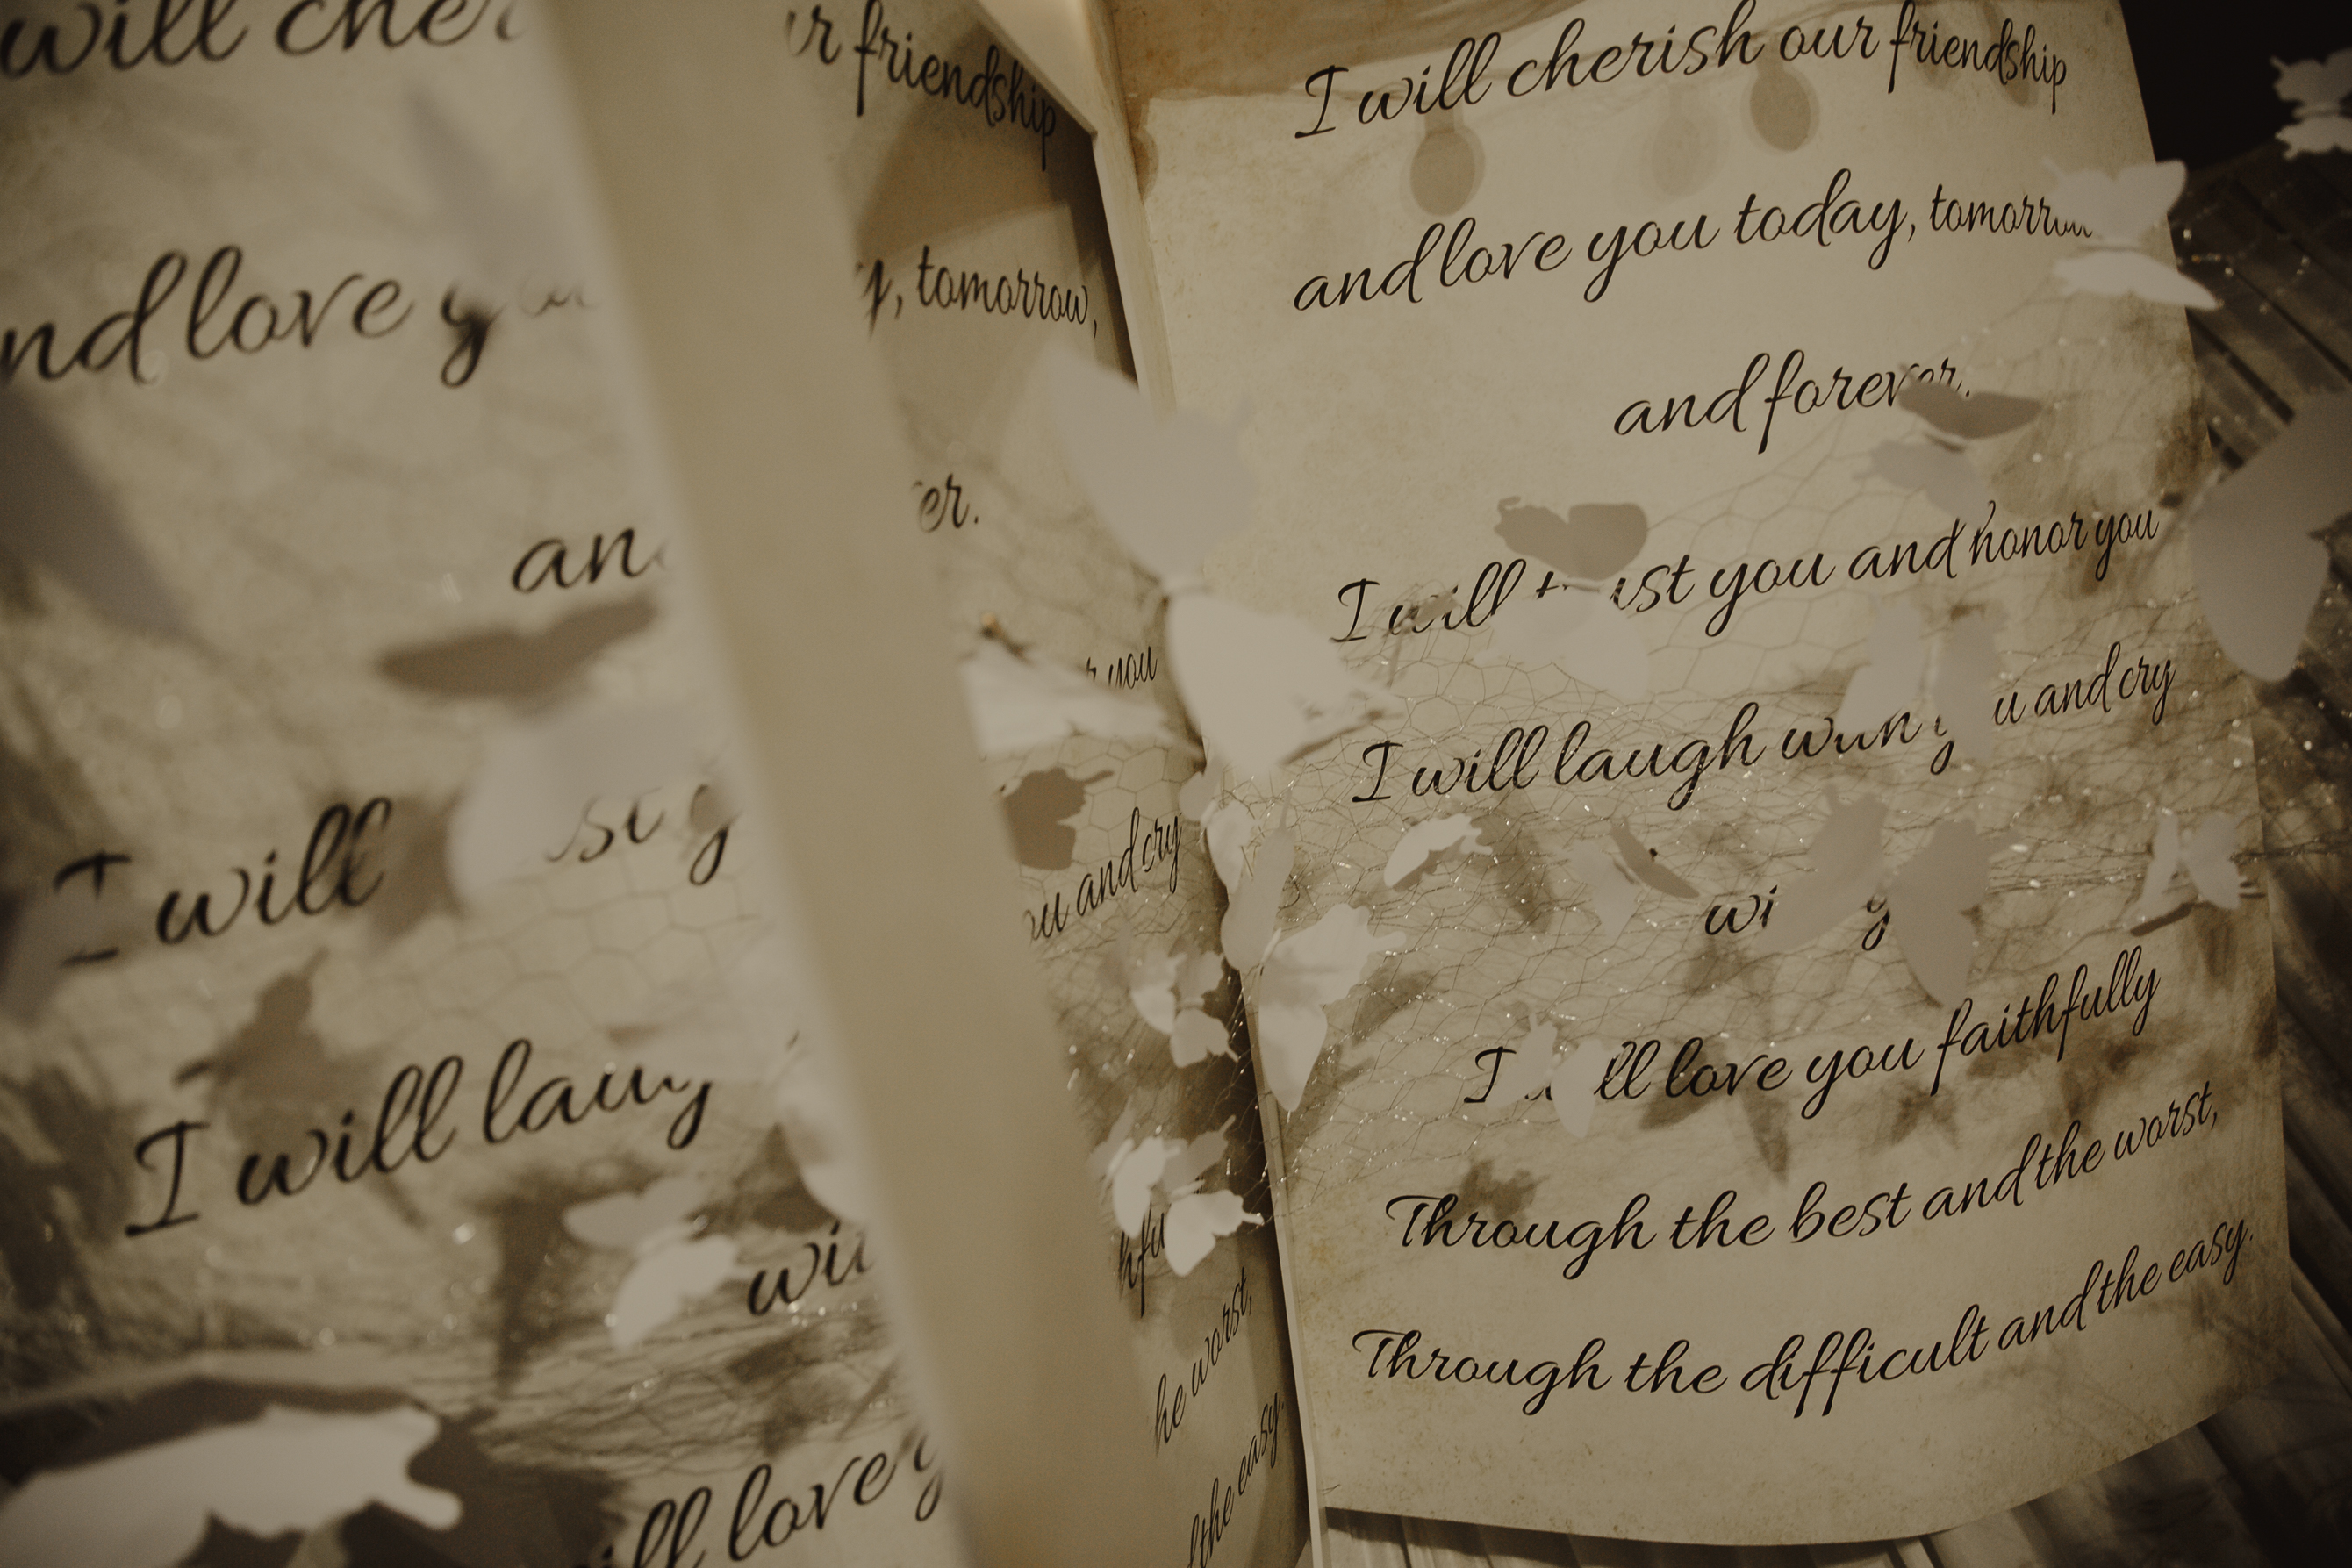 will cher
nd love you
an
I will st y
I will laug
wi
ll love y
r friendship
y, tomorrow,
er.
r you
ou and cry
hfu
he worst,
the easy.
I will cherish our friendship
and love you today, tomorrow
and forever.
I will trust you and honor you
I will laugh with you and cry
wi y
I will love you faithfully
Through the best and the worst,
Through the difficult and the easy.